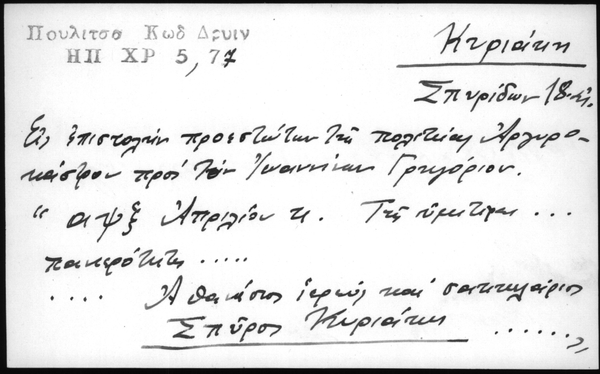 Πουλιτσα Κωδ Δρυιν
ΗΠ ΧΡ 5, 77
Κυριάκη
Σπυρίδων 18
Εἰς ἐπιστολήν προεστώτων τῆς πολιτείας Ἀργυρο-
κάστρου πρός τόν Ἰωαννίνων Γρηγόριον.
"αψξ Ἀπριλίου κ. Τῆς ὑμετέρας ...
πανιερότητος .....
.... Ἀθανάσιος ἱερεύς καί σακελλάριος
Σπῦρος Κυριάκη ......"